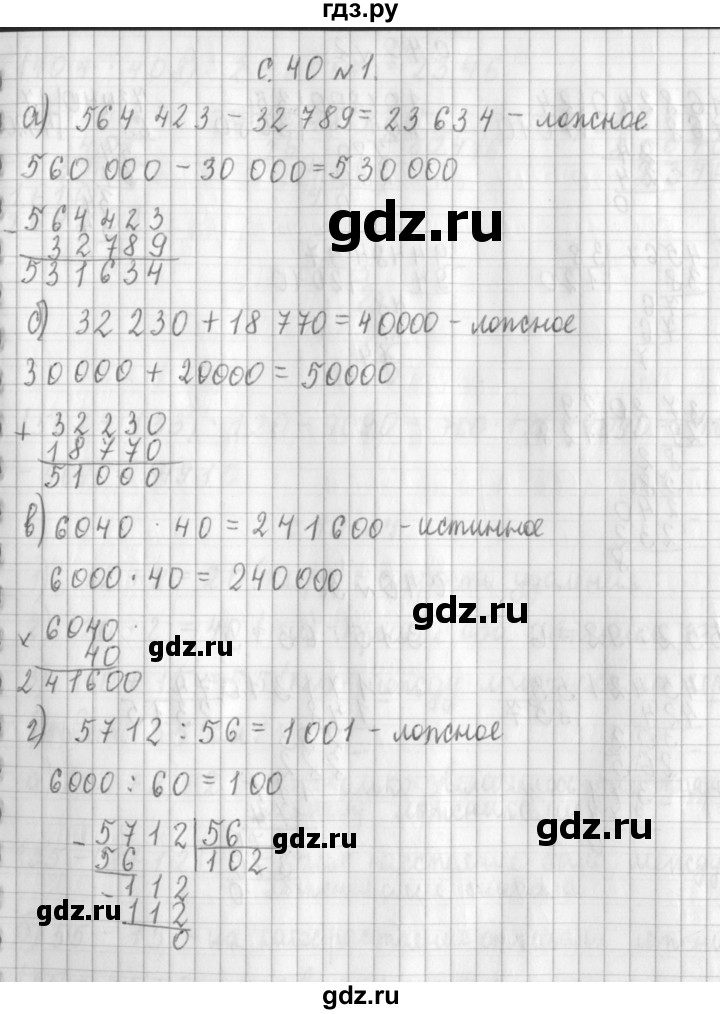 гдз.ру
с. 40 №1.
а) 564 423 - 32 789 = 23 634 - ложное
560 000 - 30 000 = 530 000
- 564423
gdz.ru
32789
531634
б) 32 230 + 18 770 = 40000 - ложное
30 000 + 20000 = 50000
+ 32230
18770
51000
в) 6040 · 40 = 241600 - истинное
6000 · 40 = 240 000
gdz.ru
× 6040
40 gdz.ru
241600
г) 5712 : 56 = 1001 - ложное
6000 : 60 = 100
- 5712 | 56
gdz.ru gdz.ru
56 102
- 112
gdz.ru 112
0
gdz.ru